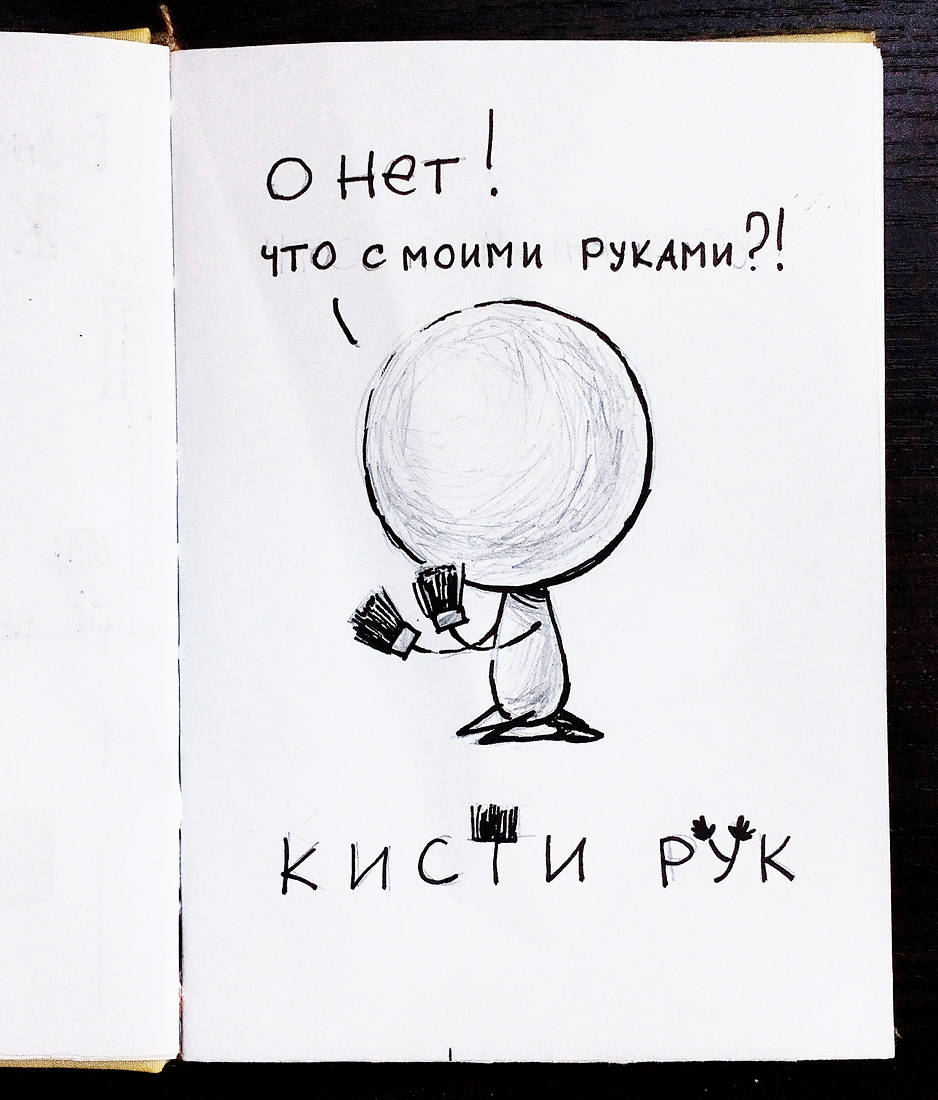 О нет!
что с моими руками?!
КИСТИ РУК